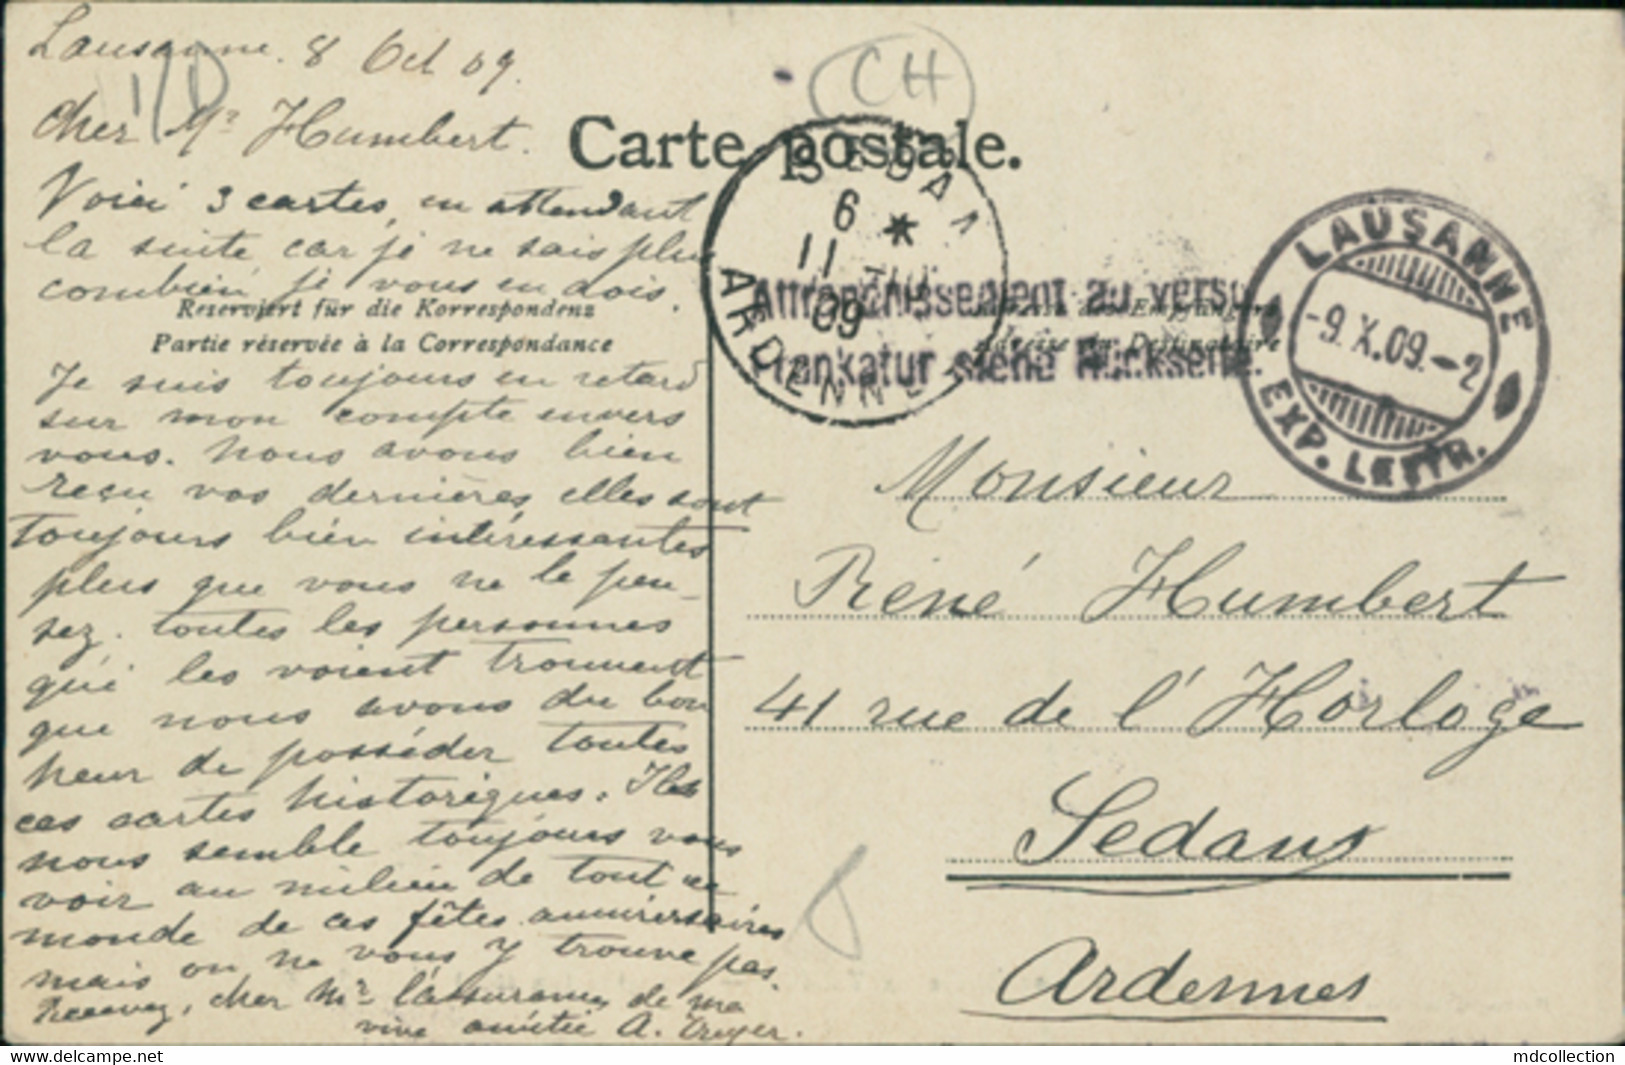 Lausanne. 8 Oct 09.
CH
Cher Mr Humbert.
Carte postale.
Voici 3 cartes, en attendant
la suite car je ne sais plus
combien je vous en dois.
Reserviert für die Korrespondenz
Partie réservée à la Correspondance
Je suis toujours en retard
sur mon compte envers
vous. Nous avons bien
reçu vos dernières, elles sont
toujours bien intéressantes
plus que vous ne le pen-
sez. toutes les personnes
qui les voient trouvent
que nous avons du bon
heur de posséder toutes
ces cartes historiques.
nous semble toujours vous
voir au milieu de tout ce
monde de ces fêtes anniversaires
mais on ne vous y trouve pas.
Recevez, cher Mr l'assurance de ma
vive amitié A. Treyer.
SEDAN
6 *
11
09
ARDENNES
Affranchissement au verso
Frankatur siehe Rückseite.
Adresse des Empfängers
Adresse du Destinataire
LAUSANNE
-9.X.09.-2
EXP. LETTR.
Monsieur
René Humbert
41 rue de l'Horloge
Sedans
Ardennes
8
delcampe.net
mdcollection